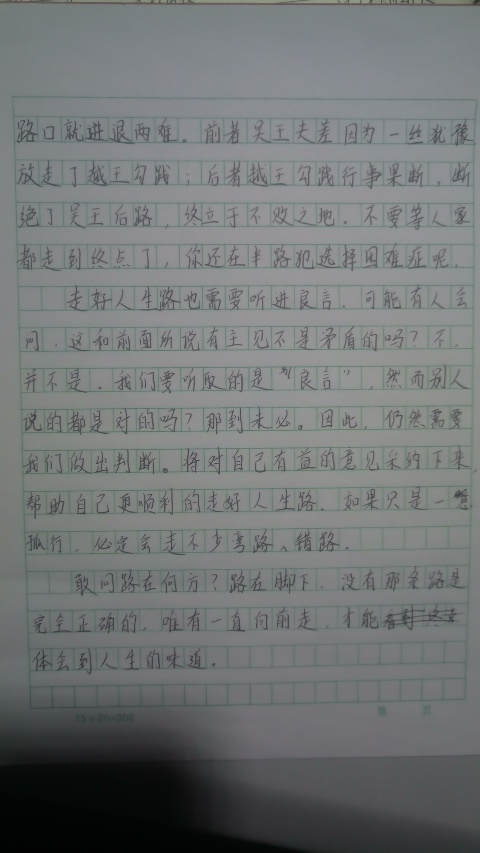 路口就进退两难。前者吴王夫差因为一丝犹豫
放走了越王勾践；后者越王勾践行事果断，断
绝了吴王后路，终立于不败之地。不要等人家
都走到终点了，你还在半路犯选择困难症呢。
走好人生路也需要听进良言。可能有人会
问，这和前面所说有主见不是矛盾的吗？不，
并不是。我们要听取的是“良言”，然而别人
说的都是对的吗？那到未必。因此，仍然需要
我们做出判断。将对自己有益的意见采纳下来，
帮助自己更顺利的走好人生路。如果只是一意
孤行，必定会走不少弯路、错路。
敢问路在何方？路在脚下，没有那条路是
完全正确的，唯有一直向前走，才能
体会到人生的味道。
15×20=300
第 页